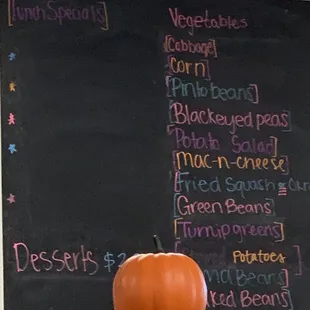 [Lunch Specials]
Vegetables
[Cabbage]
[Corn]
[Pinto beans]
[Blackeyed peas]
[Potato Salad]
[Mac-n-cheese]
[Fried Squash
[Green Beans]
[Turnip greens]
Potatoes]
Beans]
Beans]
Desserts $